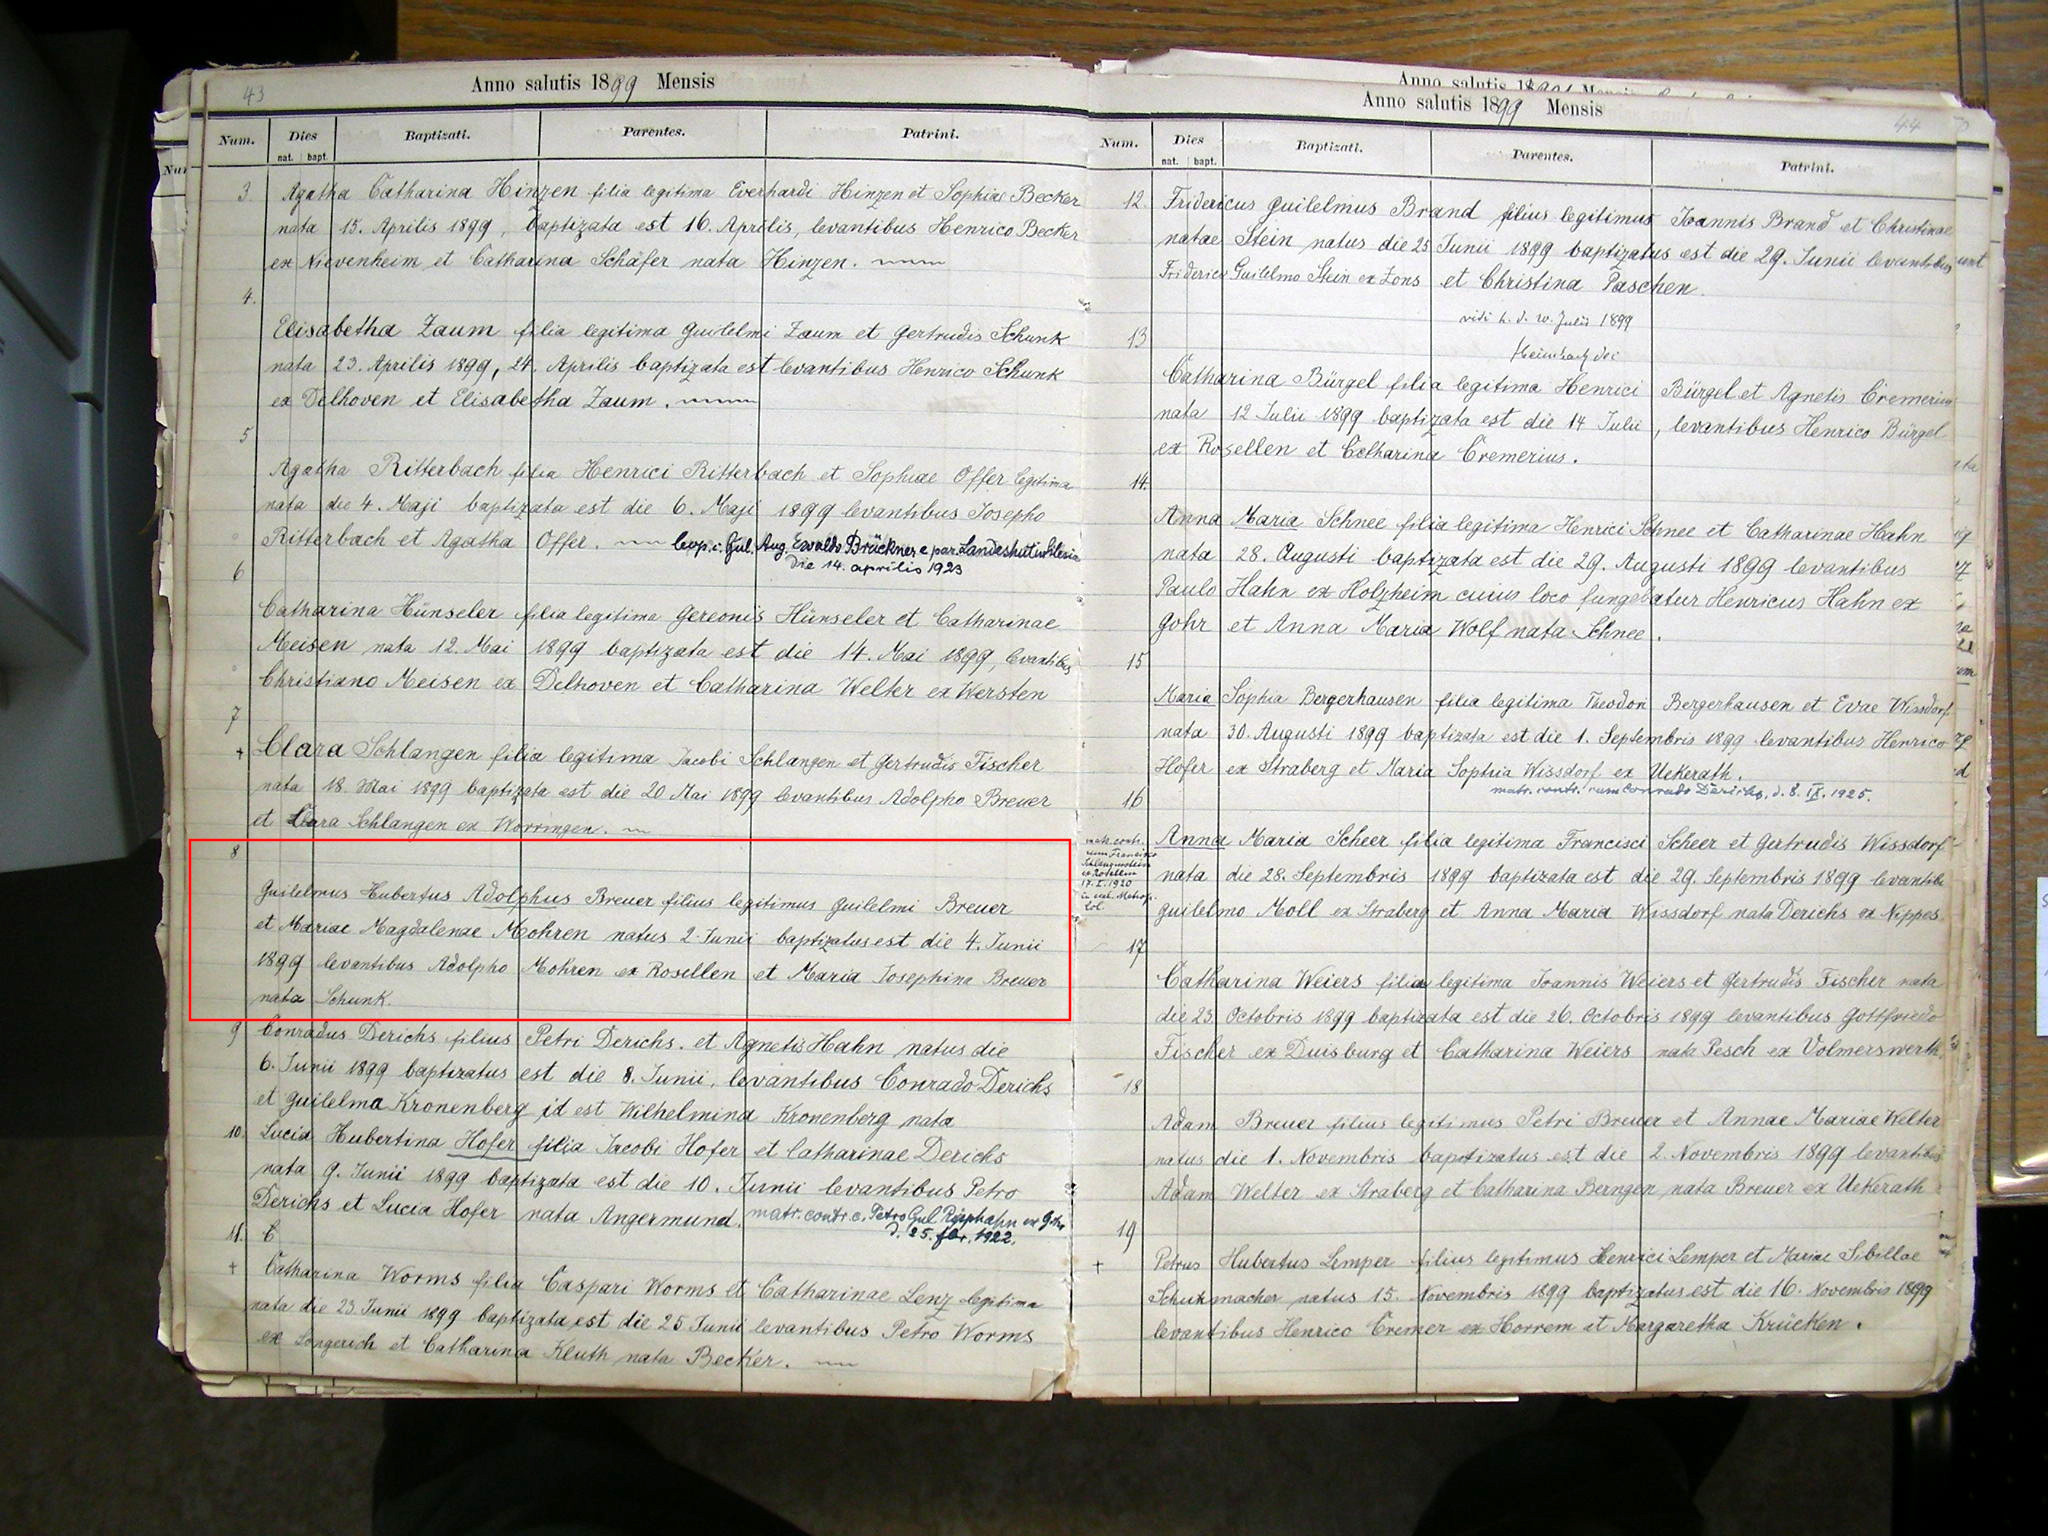 43
Anno salutis 1899 Mensis
Num. Dies Baptizati. Parentes. Patrini.
nat. bapt.
3. Agatha Catharina Hinzen filia legitima Everhardi Hinzen et Sophiae Becker
nata 15. Aprilis 1899, baptizata est 16. Aprilis, levantibus Henrico Becker
ex Nievenheim et Catharina Schäfer nata Hinzen.
4.
Elisabetha Zaum filia legitima Guilelmi Zaum et Gertrudis Schunk
nata 23. Aprilis 1899, 24. Aprilis baptizata est levantibus Henrico Schunk
ex Delhoven et Elisabetha Zaum.
5
Agatha Ritterbach filia Henrici Ritterbach et Sophiae Offer legitima
nata die 4. Maji baptizata est die 6. Maji 1899 levantibus Josepho
Ritterbach et Agatha Offer. cop. c. Gul. Aug. Ewaldo Brückner e par. Landeshut
die 14. aprilis 1923
6
Catharina Hünseler filia legitima Gereonis Hünseler et Catharinae
Meisen nata 12. Mai 1899 baptizata est die 14. Mai 1899, levantibus
Christiano Meisen ex Delhoven et Catharina Welter ex Wersten
7
+ Clara Schlangen filia legitima Jacobi Schlangen et Gertrudis Fischer
nata 18. Mai 1899 baptizata est die 20 Mai 1899 levantibus Adolpho Breuer
et Clara Schlangen ex Worringen.
8
Guilelmus Hubertus Adolphus Breuer filius legitimus Guilelmi Breuer
et Mariae Magdalenae Mohren natus 2. Junii baptizatus est die 4. Junii
1899 levantibus Adolpho Mohren ex Rosellen et Maria Josephina Breuer
nata Schunk.
9 Conradus Derichs filius Petri Derichs. et Agnetis Hahn natus die
6. Junii 1899 baptizatus est die 8. Junii, levantibus Conrado Derichs
et Guilelma Kronenberg id est Wilhelmina Kronenberg nata
10. Lucia Hubertina Hofer filia Jacobi Hofer et Catharinae Derichs
nata 9. Junii 1899 baptizata est die 10. Junii levantibus Petro
Derichs et Lucia Hofer nata Angermund. matr. contr. c. Petro Gul. Ripphahn ex Gohr
d. 25. febr. 1922.
11. C
+ Catharina Worms filia Caspari Worms et Catharinae Lenz legitima
nata die 23. Junii 1899 baptizata est die 25 Junii levantibus Petro Worms
ex Longerich et Catharina Kluth nata Becker.
Anno salutis 1899 Mensis
44
Num. Dies Baptizati. Parentes. Patrini.
nat. bapt.
12. Fridericus Guilelmus Brand filius legitimus Joannis Brand et Christinae
natae Stein natus die 25 Junii 1899 baptizatus est die 29. Junii levantibus
Friderico Guilelmo Stein ex Zons et Christina Paschen.
vidi h. d. 10. Julii 1899
13
Catharina Bürgel filia legitima Henrici Bürgel et Agnetis Cremerius
nata 12 Julii 1899 baptizata est die 14 Julii, levantibus Henrico Bürgel
ex Rosellen et Catharina Cremerius.
14.
Anna Maria Schnee filia legitima Henrici Schnee et Catharinae Hahn
nata 28. Augusti baptizata est die 29. Augusti 1899 levantibus
Paulo Hahn ex Holzheim cuius loco fungebatur Henricus Hahn ex
Gohr et Anna Maria Wolf nata Schnee.
15
Maria Sophia Bergerhausen filia legitima Theodori Bergerhausen et Evae Wissdorf
nata 30. Augusti 1899 baptizata est die 1. Septembris 1899 levantibus Henrico
Hofer ex Straberg et Maria Sophia Wissdorf ex Uekerath.
matr. contr. cum Conrado Derichs, d. 8. IX. 1925.
16
matr. contr.
cum Francisco
ex Rosellen
17. I. 1920
in eccl. Metrop.
Col.
Anna Maria Scheer filia legitima Francisci Scheer et Gertrudis Wissdorf
nata die 28. Septembris 1899 baptizata est die 29. Septembris 1899 levantibus
Guilelmo Moll ex Straberg et Anna Maria Wissdorf nata Derichs ex Nippes.
17
Catharina Weiers filia legitima Joannis Weiers et Gertrudis Fischer nata
die 23 Octobris 1899 baptizata est die 26. Octobris 1899 levantibus Gottfriedo
Fischer ex Duisburg et Catharina Weiers nata Pesch ex Volmerswerth.
18
Adam Breuer filius legitimus Petri Breuer et Annae Mariae Welter
natus die 1. Novembris baptizatus est die 2. Novembris 1899 levantibus
Adam Welter ex Straberg et Catharina Berngen nata Breuer ex Uekerath
19
+ Petrus Hubertus Lemper filius legitimus Henrici Lemper et Mariae Sibillae
Schuhmacher natus 15. Novembris 1899 baptizatus est die 16. Novembris 1899
levantibus Henrico Cremer ex Horrem et Margaretha Krücken.